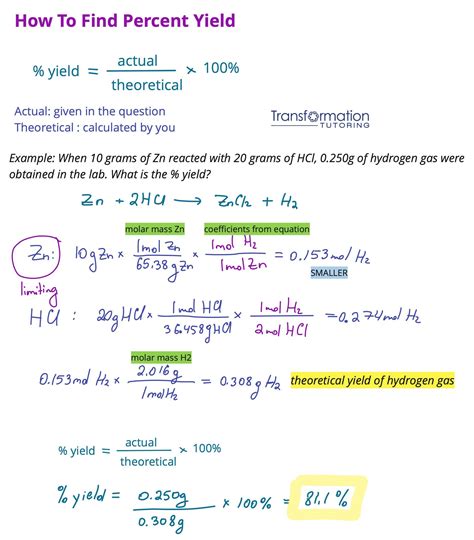 How To Find Percent Yield
% yield = actual / theoretical × 100%
Actual: given in the question
Theoretical : calculated by you
Transformation
TUTORING
Example: When 10 grams of Zn reacted with 20 grams of HCl, 0.250g of hydrogen gas were
obtained in the lab. What is the % yield?
Zn + 2HCl → ZnCl2 + H2
molar mass Zn coefficients from equation
Zn: 10gZn × 1mol Zn / 65.38gZn × 1mol H2 / 1molZn = 0.153mol H2
SMALLER
limiting
HCl : 20gHCl × 1mol HCl / 36.458gHCl × 1mol H2 / 2mol HCl = 0.274mol H2
molar mass H2
0.153mol H2 × 2.016g / 1molH2 = 0.308g H2 theoretical yield of hydrogen gas
% yield = actual / theoretical × 100%
% yield = 0.250g / 0.308g × 100% = 81.1%